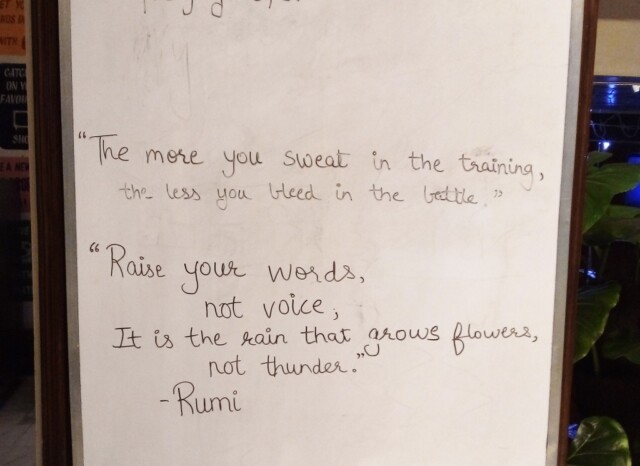 “The more you sweat in the training,
the less you bleed in the battle.”
“Raise your words,
not voice,
It is the rain that grows flowers,
not thunder.”
-Rumi